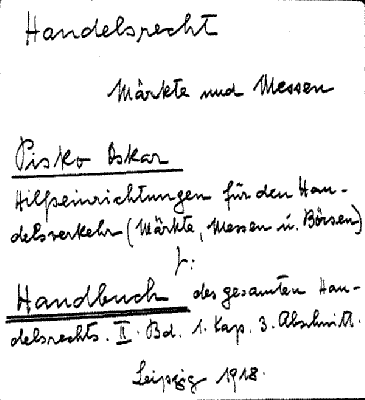 Handelsrecht
Märkte und Messen
Pisko Oskar
Hilfseinrichtungen für den Han-
delsverkehr (Märkte, Messen u. Börsen)
f:
Handbuch des gesamten Han-
delsrechts. II. Bd. 1. Kap. 3. Abschnitt.
Leipzig 1918.